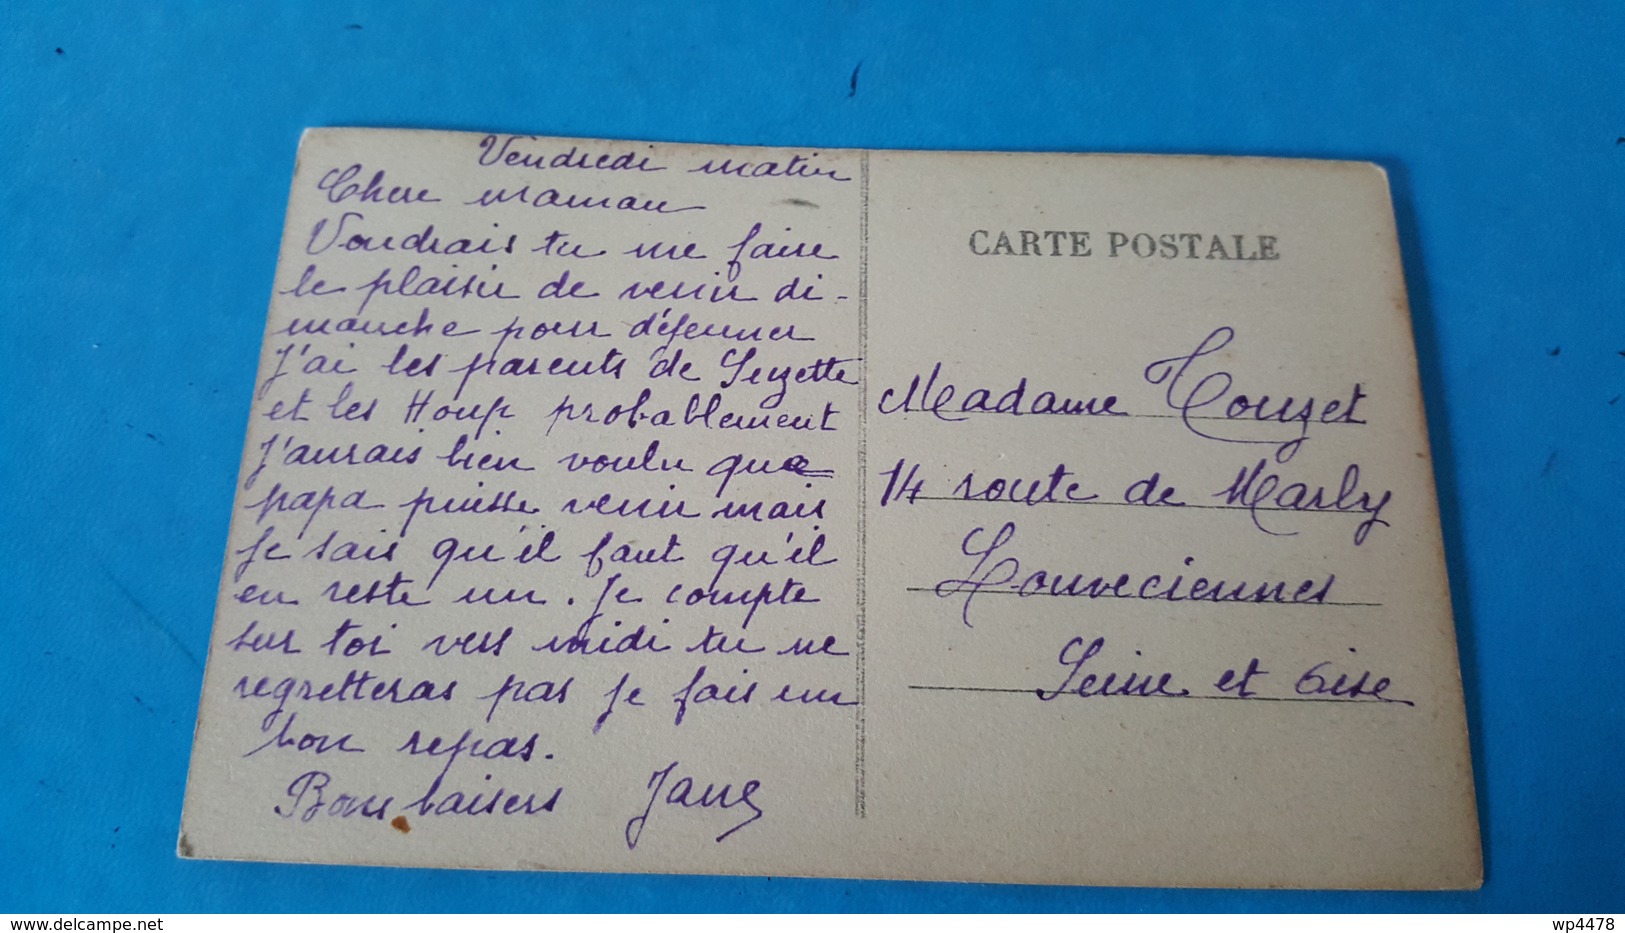 Vendredi matin
Chere maman
Voudrais tu me faire
le plaisir de venir di-
manche pour déjeuner
J'ai les parents de Suzette
et les Houp probablement
J'aurais bien voulu que
papa puisse venir mais
je sais qu'il faut qu'il
en reste un. Je compte
sur toi vers midi tu ne
regretteras pas je fais un
bon repas.
Bons baisers Jane
CARTE POSTALE
Madame Touzet
14 route de Marly
Louveciennes
Seine et Oise
delcampe.net
wp4478